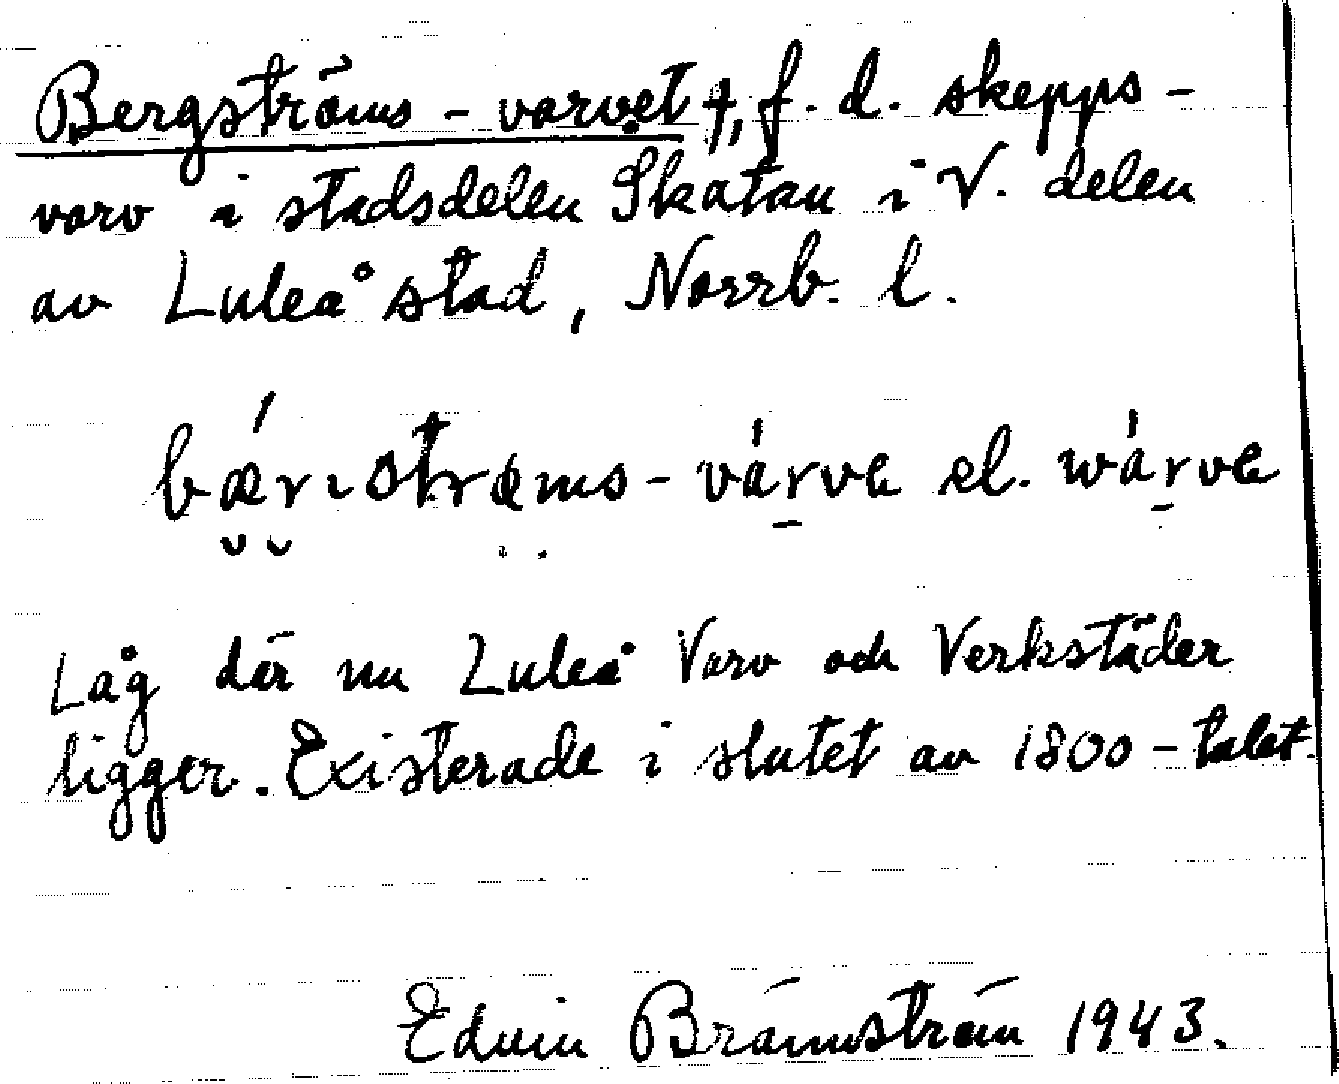 Bergströms-varvet †, f.d. skepps-
varv i stadsdelen Skatan i V. delen
av Luleå stad, Norrb. l.
bǽrıstrøms-várve el. wárve
Låg där nu Luleå Varv och Verkstäder
ligger. Existerade i slutet av 1800-talet.
Edvin Brännström 1943.